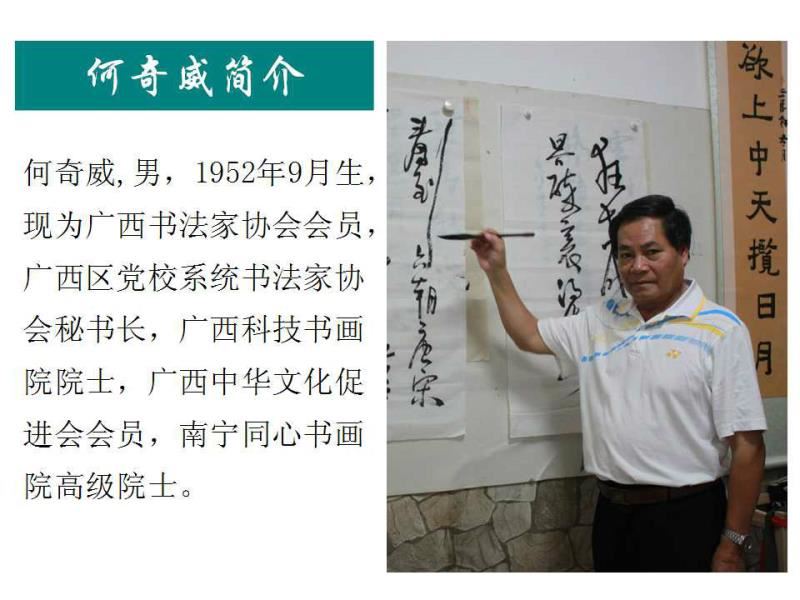 何奇威简介
何奇威,男，1952年9月生，
现为广西书法家协会会员，
广西区党校系统书法家协
会秘书长，广西科技书画
院院士，广西中华文化促
进会会员，南宁同心书画
院高级院士。
欲上中天揽日月
六朝唐宋